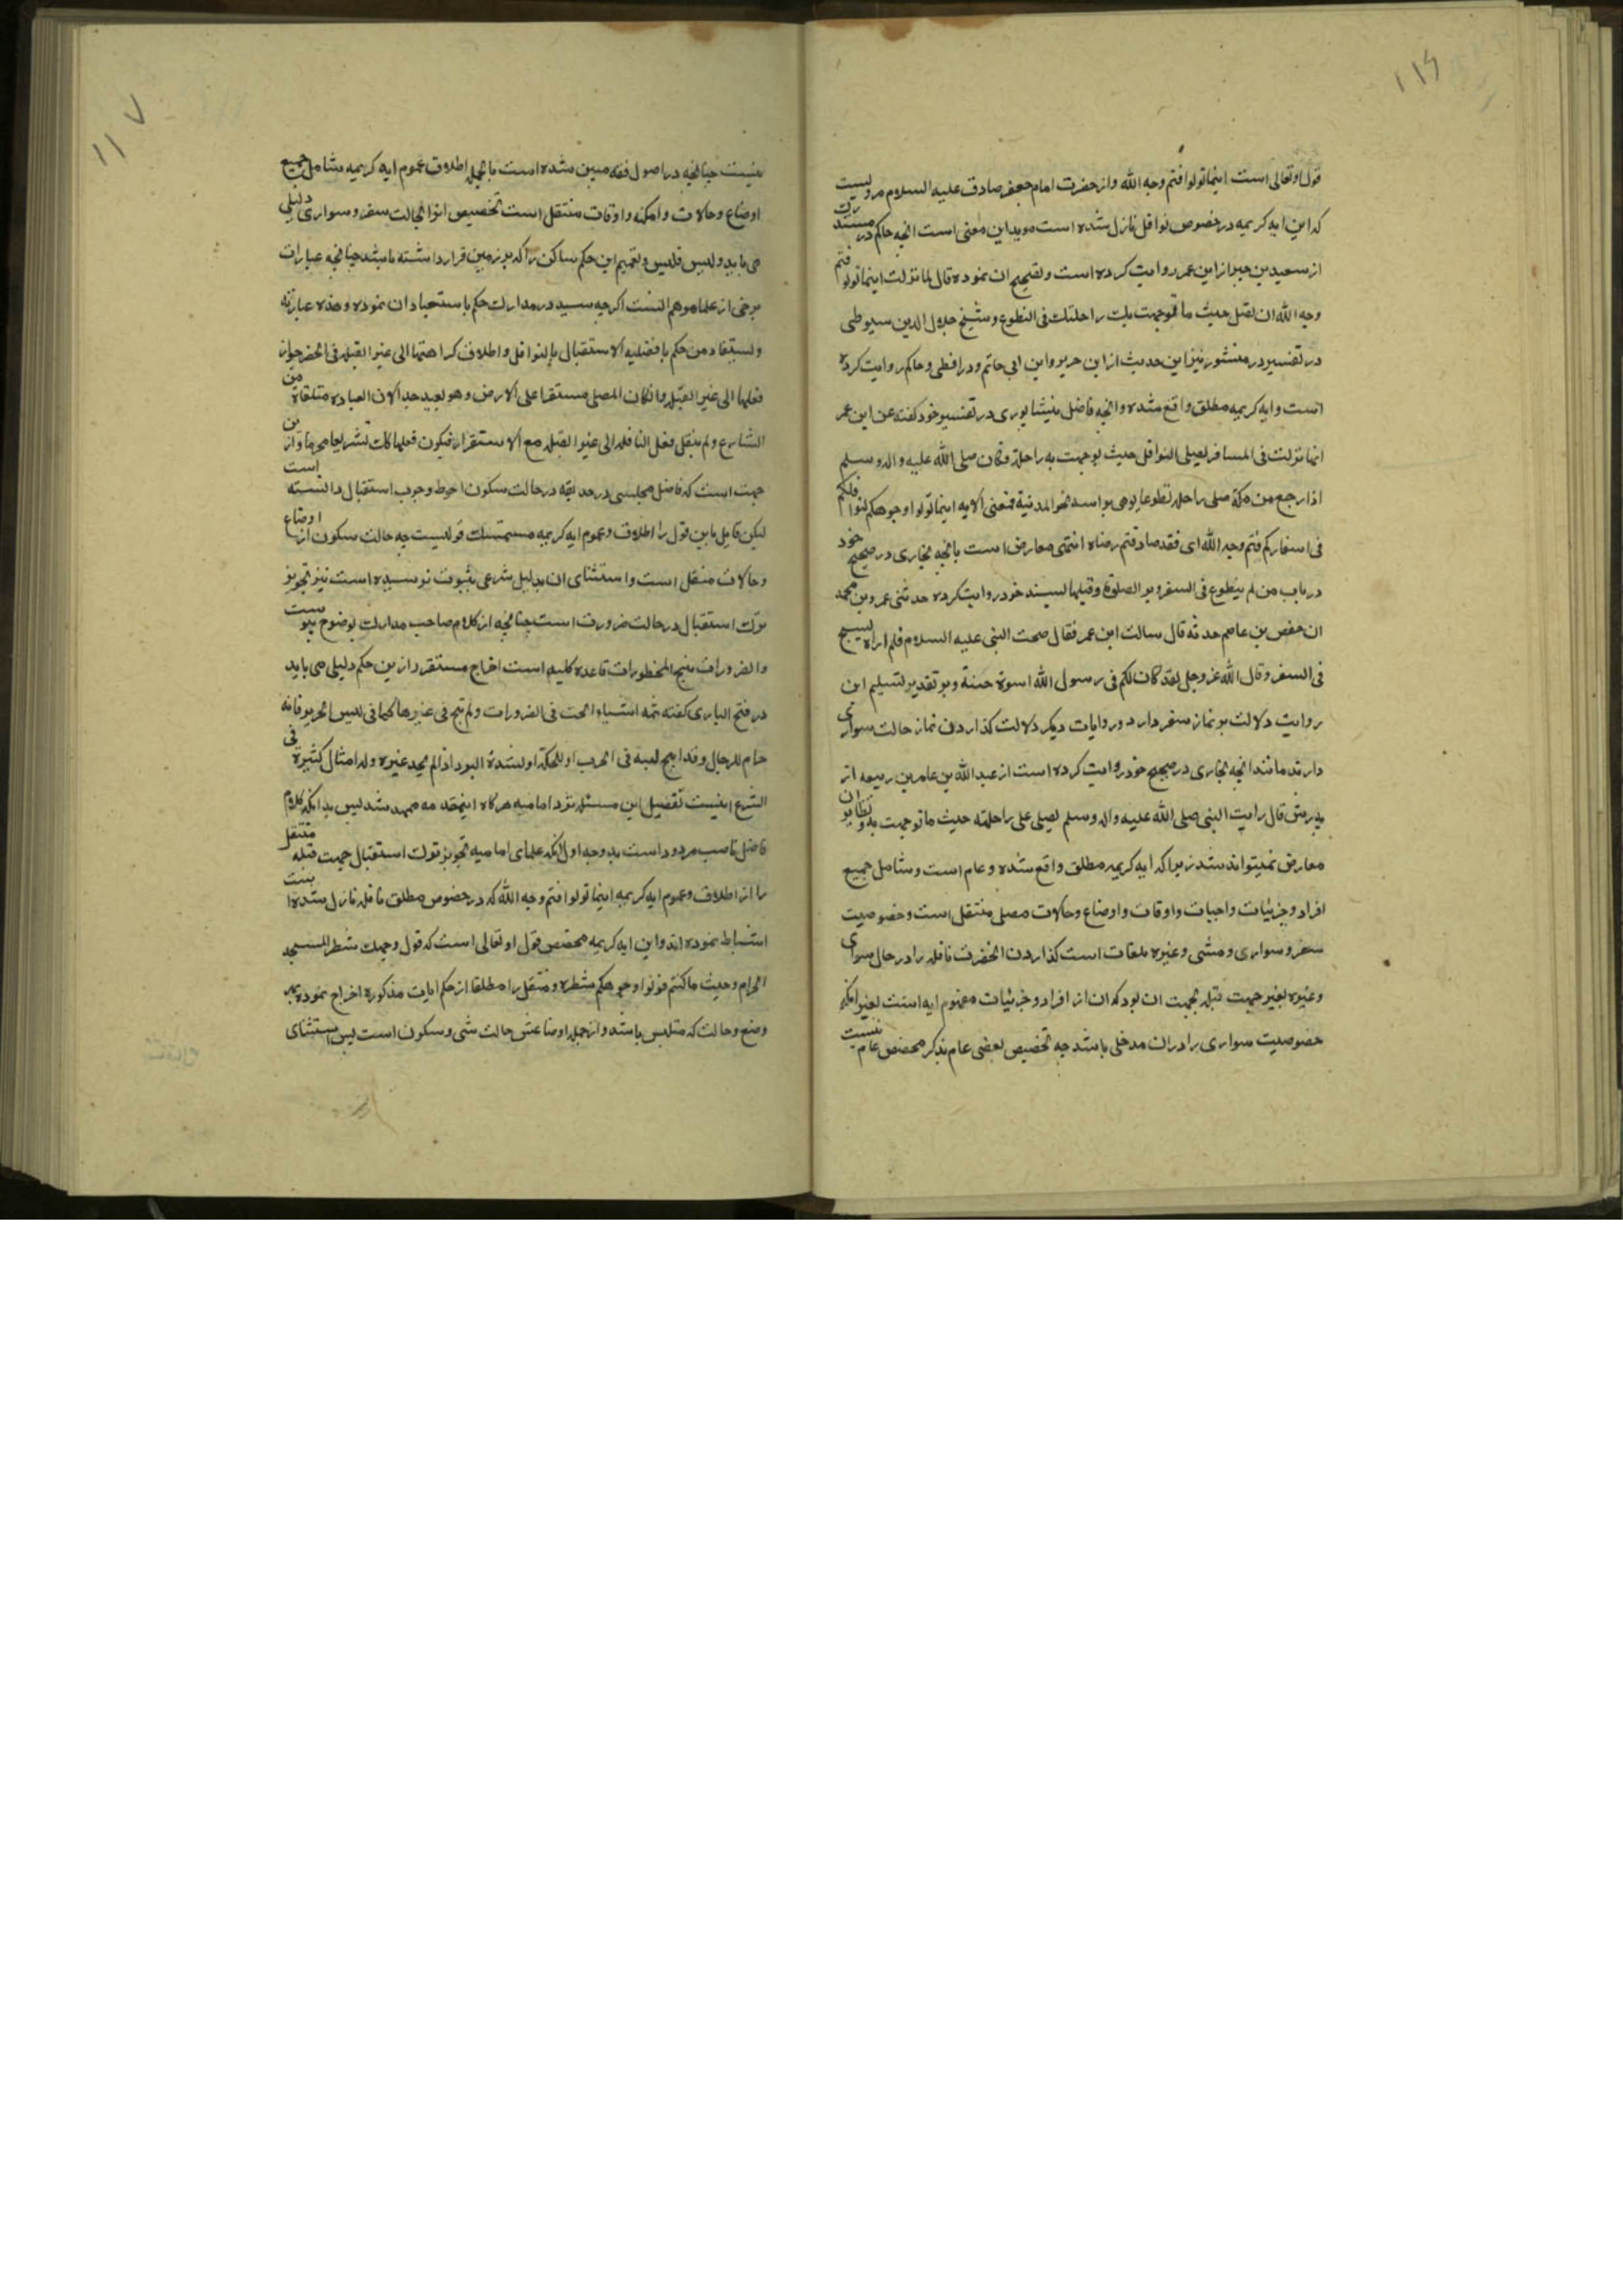 ۱۱۶
قول او تعالی است اینما تولوا فثم وجه الله و از حضرت امام جعفر صادق علیه السلام مرویست
که این ایه کریمه در خصوص نوافل نازل شده است موید این معنی است انچه حاکم در مستدرک
از سعید بن جبیر از ابن عمر روایت کرده است و تصحیح ان نموده قال لما نزلت اینما تولوا فثم
وجه الله ان تصل حیث ما توجهت بک راحلتک فی التطوع و شیخ جلال الدین سیوطی
در تفسیر در منشور نیز این حدیث از ابن جریر و ابن ابی حاتم و دراقطی و حاکم روایت کرده
است و ایه کریمه مطلق واقع شده و انچه فاضل نیشاپوری در تفسیر خود گفته عن ابن عمر
انها نزلت فی المسافر یصلی النوافل حیث توجهت به راحلته و کان صلی الله علیه و اله و سلم
اذا رجع من مکة صلی راحلته تطوعا یومی براسه نحو المدنیة فمعنی الایه اینما تولوا وجوهکم لنوافلکم
فی اسفارکم فثم وجه الله ای فقد صادفتم رضاه انتهی معارض است بانچه بخاری در صحیح خود
در باب من لم یتطوع فی السفر دبر الصلوة و قبلها بسند خود روایت کرده حدثنی عمرو بن محمد
ان حفص بن عاصم حدثه قال سالت ابن عمر فقال صحبت النبی علیه السلام فلم اراه یسبح
فی السفر و قال الله عز وجل لقد کان لکم فی رسول الله اسوة حسنة و بر تقدیر تسلیم این
روایت دلالت بر نماز سفر دارد و روایات دیگر دلالت گذاردن نماز حالت سواری
دارند مانند انچه بخاری در صحیح خود روایت کرده است از عبد الله بن عامر بن ربیعه از
پدرش قال رایت النبی صلی الله علیه و اله و سلم یصلی علی راحلته حیث ما توجهت به و نظایر ان
معارض نمیتواند شد زیرا که ایه کریمه مطلق واقع شده و عام است و شامل جمیع
افراد و جزئیات واجبات و اوقات و اوضاع و حالات مصلی متنفل است و خصوصیت
سفر و سواری و مشی و غیره ملغات است گذاردن انحضرت نافله را در حال سواری
و غیره بغیر جهت قبله بجهت ان بود که ان از افراد و جزئیات مفهوم ایه است بغیر انکه
خصوصیت سواری را دران مدخلی باشد چه تخصیص بعضی عام بذکر مخصص عام نیست
۱۱۷
نیست چنانچه در اصول فقه مبین شده است بالجمله اطلاق عموم ایه کریمه شامل جمیع
اوضاع و حالات و امکنه و اوقات متنفل است تخصیص انرا بحالت سفر و سواری دلیلی
می باید و لیس فلیس و تعمیم این حکم ساکن را که بر زمین قرار داشته باشد چنانچه عبارات
برخی از علما موهم انست اگرچه سید در مدارک حکم باستبعاد ان نموده و هذه عبارته
و یستفاد من حکم بافضلیة الاستقبال بالنوافل و اطلاق کراهتها الی غیر القبله فی الحضر جواز
فعلها الی غیر القبله و انکان المصلی مستقرا علی الارض و هو بعید جدا لان العبادة متلقاة من
الشارع و لم ینقل فعل النافله الی غیر القبله مع الاستقرار فیکون فعلها کذلک تشریعا محرما و از این
جهت است که فاضل مجلسی در حدیقه در حالت سکون احوط وجوب استقبال دانسته است
لیکن قایل باین قول را اطلاق و عموم ایه کریمه مستمسک قویست چه حالت سکون از اوضاع
و حالات متنفل است و استثنای ان بدلیل شرعی بثبوت نرسیده است نیز تجویز
ترک استقبال در حالت ضرورت است چنانچه از کلام صاحب مدارک بوضوح پیوست
و الضرورات تبیح المحظورات قاعده کلیه است اخراج مستقر از این حکم دلیلی می باید
در فتح الباری گفته ثمه اشیاء ابحت فی الضرورات و لم تبح فی غیرها کما فی لبس الحریر فانه
حرام للرجال و قد ابیح لبسه فی الحرب او للحکة او لشدة البرد اذا لم یجد غیره و له امثال کثیرة فی
الشرع اینست تفصیل این مسئله نزد امامیه هرگاه اینمقدمه ممهد شد پس بدانکه کلام
فاضل ناصب مردود است بدو وجه اول انکه علمای امامیه تجویز ترک استقبال جهت قبله متنفل
را از اطلاق و عموم ایه کریمه اینما تولوا فثم وجه الله که در خصوص مطلق نافله نازل شده است
استنباط نموده اند و این ایه کریمه مخصص قول او تعالی است که فول وجهک شطر المسجد
الحرام و حیث ما کنتم فولوا وجوهکم شطره و متنفل را مطلقا از حکم ایات مذکوره اخراج نموده بهر
وضع و حالت که متلبس باشد و از جمله اوضاعش حالت مشی و سکون است پس استثنای